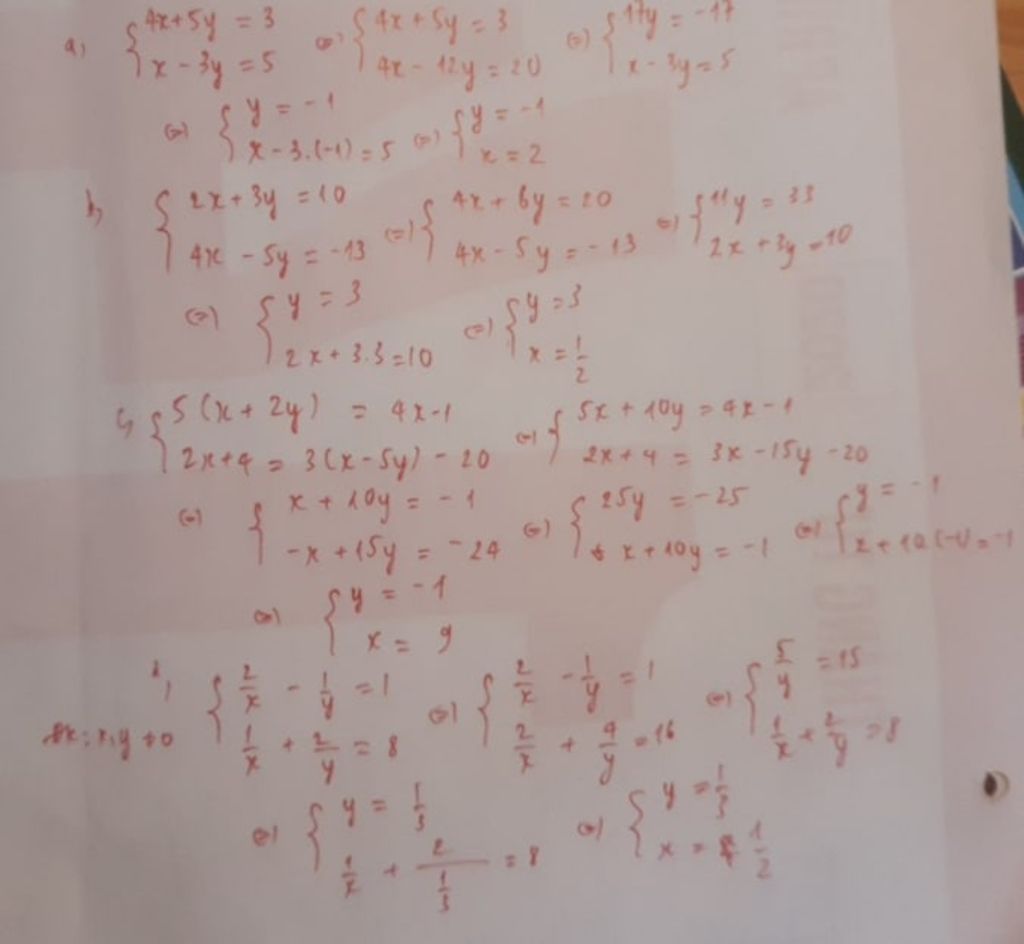 a, { 4x+5y = 3 ; x - 3y = 5 (=) { 4x + 5y = 3 ; 4x - 12y = 20 (=) { 17y = -17 ; x - 3y = 5
(=) { y = -1 ; x - 3.(-1) = 5 (=) { y = -1 ; x = 2
b, { 2x + 3y = 10 ; 4x - 5y = -13 (=) { 4x + 6y = 20 ; 4x - 5y = -13 (=) { 11y = 33 ; 2x + 3y = 10
(=) { y = 3 ; 2x + 3.3 = 10 (=) { y = 3 ; x = 1/2
c, { 5(x + 2y) = 4x-1 ; 2x+4 = 3(x-5y) - 20 (=) { 5x + 10y = 4x - 1 ; 2x+4 = 3x - 15y - 20
(=) { x + 10y = -1 ; -x + 15y = -24 (=) { 25y = -25 ; x + 10y = -1 (=) { y = -1 ; x + 10.(-1) = -1
(=) { y = -1 ; x = 9
d, { 2/x - 1/y = 1 ; 1/x + 2/y = 8 (=) { 2/x - 1/y = 1 ; 2/x + 4/y = 16 (=) { 5/y = 15 ; 1/x + 2/y = 8
đk: x, y ≠ 0
(=) { y = 1/3 ; 1/x + 2/(1/3) = 8 (=) { y = 1/3 ; x = 1/2